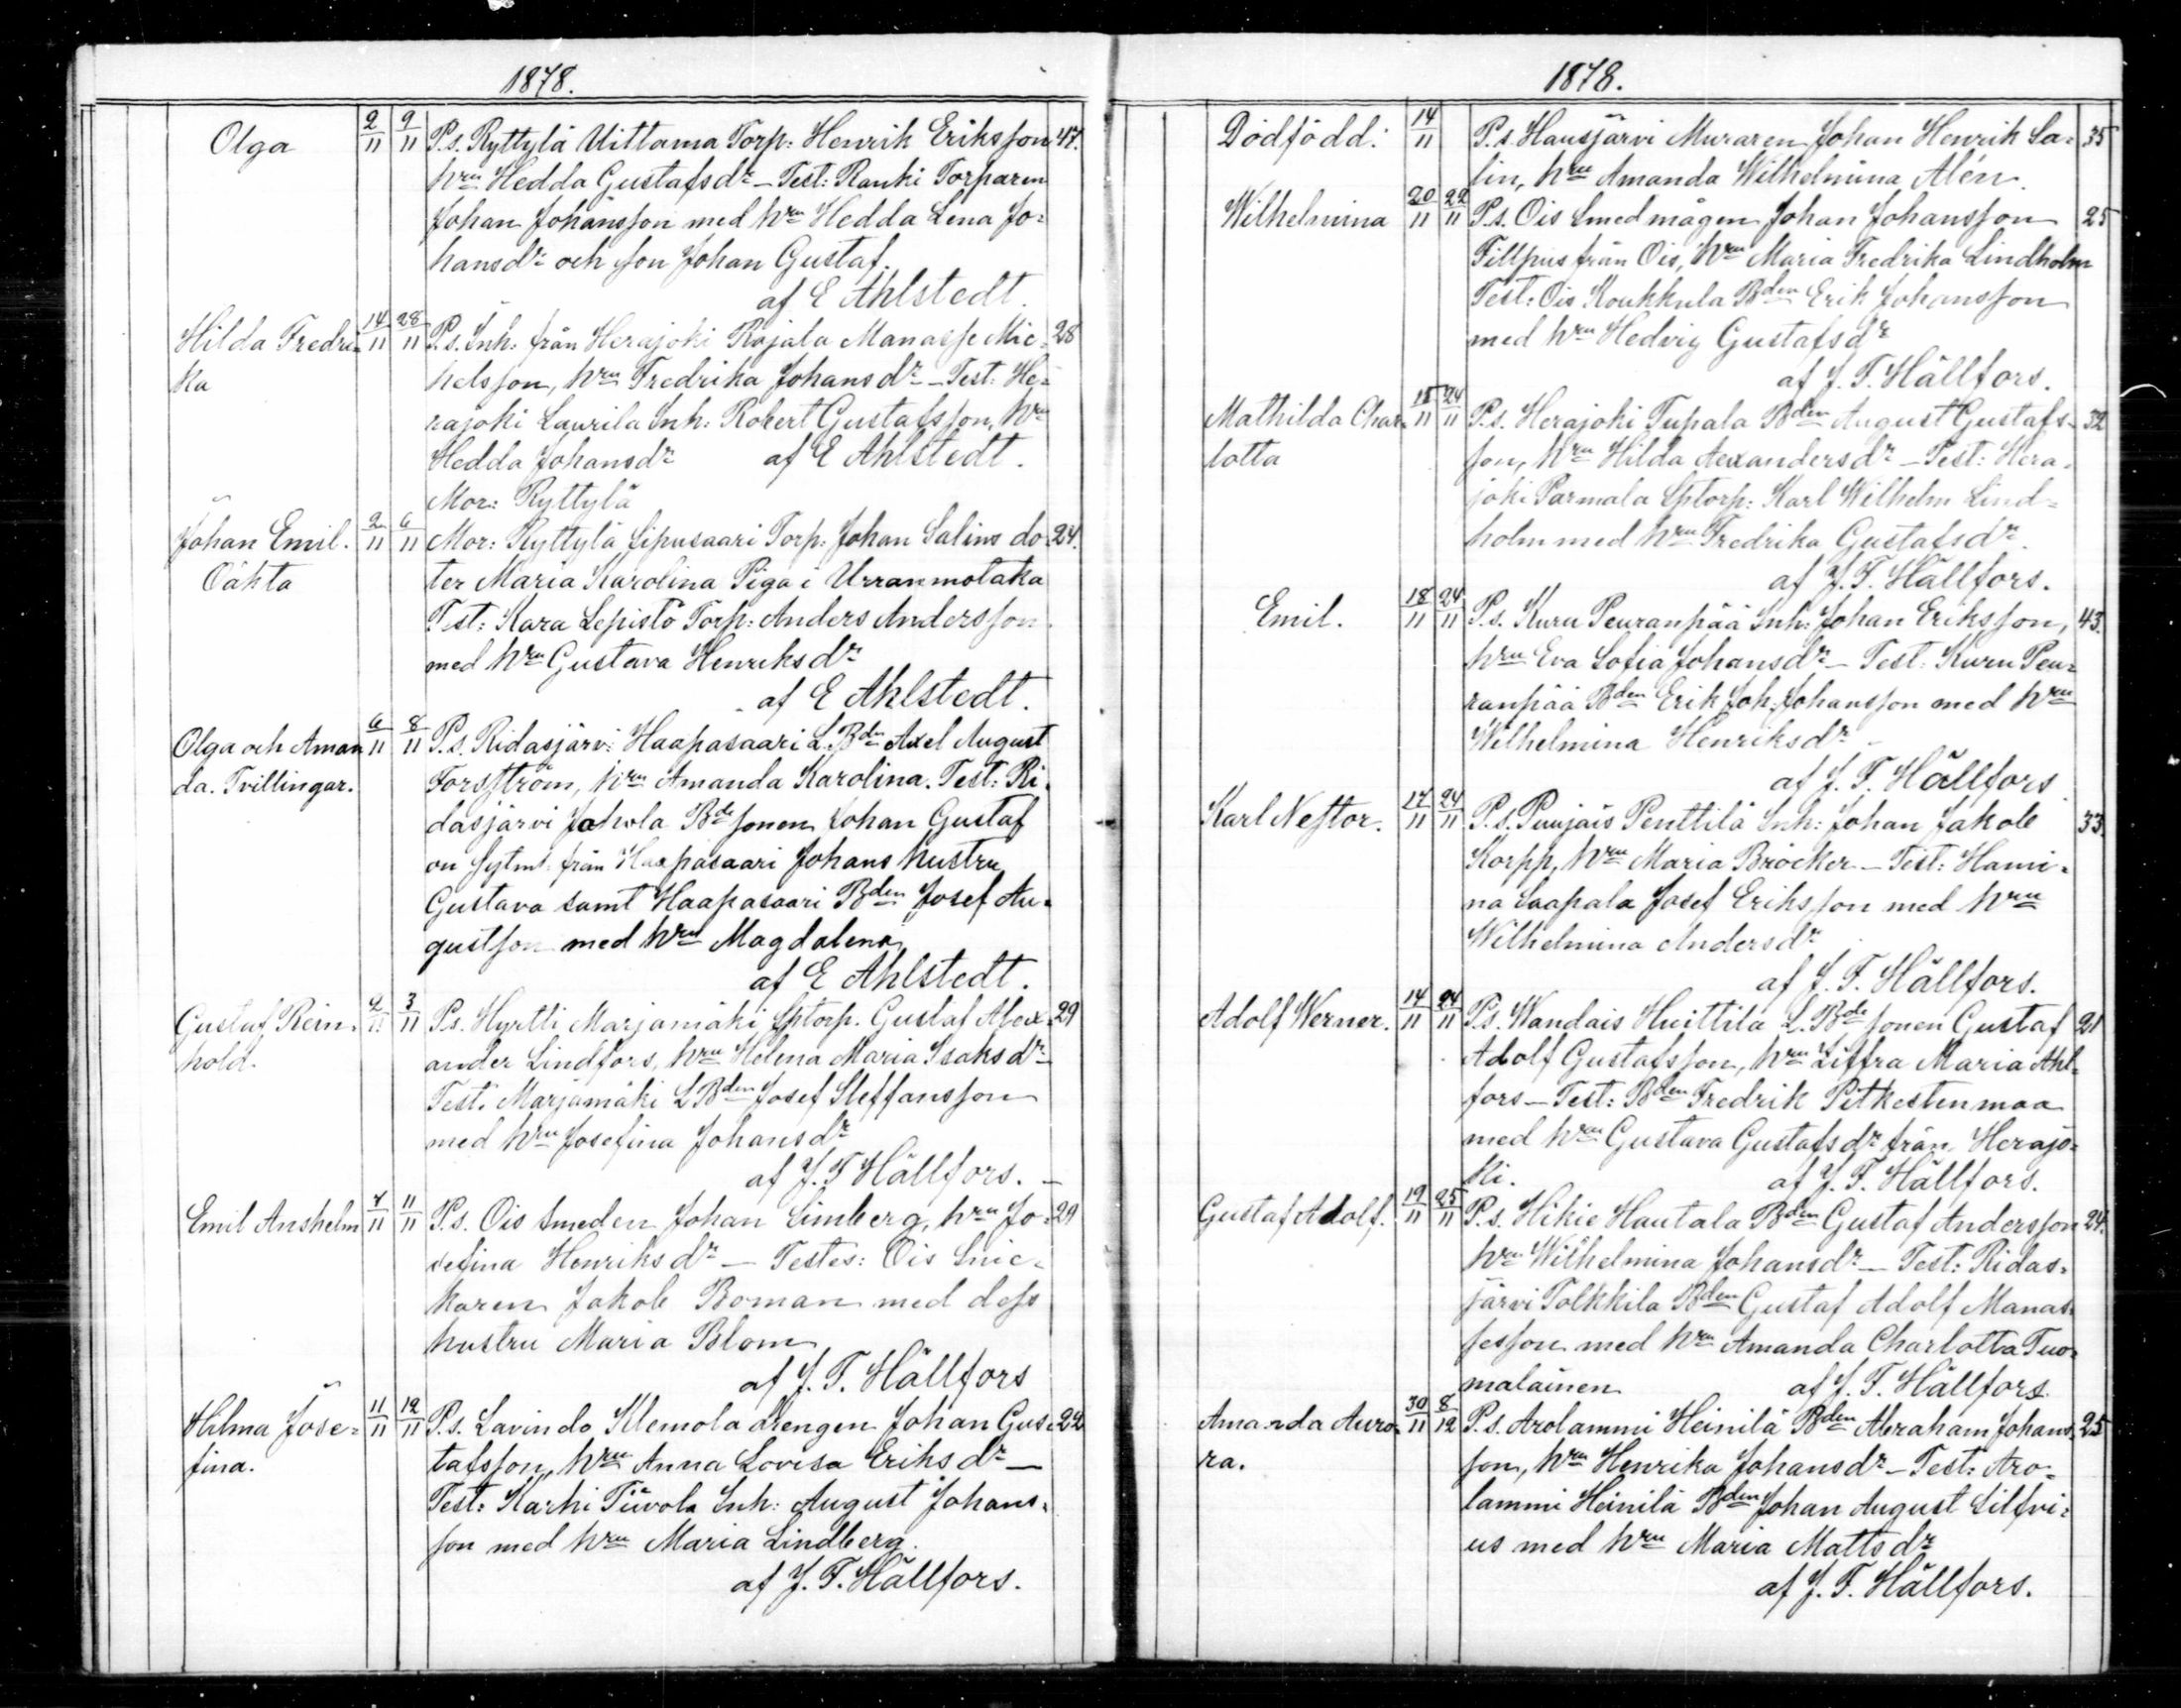 1878.
Olga 2/11 9/11 P.s. Ryttylä Uittama Torp: Henrik Eriksson 47.
hru Hedda Gustafsdr – Test: Ranki Torparen
Johan Johansson med hru Hedda Lena Jo=
hansdr och son Johan Gustaf.
af E Ahlstedt.
Hilda Fredri= 14/11 28/11 P.s. Inh: från Herajoki Rajala Manasse Mic= 28
ka helsson, hru Fredrika Johansdr – Test: He=
rajoki Laurila Inh: Robert Gustafsson, hru
Hedda Johansdr af E Ahlstedt.
Mor: Ryttylä
Johan Emil. 2/11 6/11 Mor: Ryttylä Sipusaari Torp: Johan Salins do= 24.
Oäkta ter Maria Karolina Piga i Urranmotaka
Test: Kara Lepistö Torp: Anders Andersson
med hru Gustava Henriksdr
af E Ahlstedt.
Olga och Aman 6/11 8/11 P.s. Ridasjärvi Haapasaari L.Bdn Axel August
da. Tvillingar. Forsström, hru Amanda Karolina. Test: Ri=
dasjärvi Johola Bdesonen Johan Gustaf
från Haapasaari Johans hustru
Gustava samt Haapasaari Bden Josef Au=
gustson med hru Magdalena
af E Ahlstedt.
Gustaf Rein= 2/11 3/11 P.s. Hyrtti Marjamäki Sptorp. Gustaf Alex= 29
hold. ander Lindfors, hru Helena Maria Isaksdr –
Test. Marjamäki LBden Josef Steffansson
med hru Josefina Johansdr
af J. F. Hällfors. –
Emil Anshelm 7/11 11/11 P.s. Ois Smeden Johan Limberg, hru Jo= 29
sefina Henriksdr – Testes: Ois Snic=
karen Jakob Boman med dess
hustru Maria Blom
af J. F. Hällfors
Hilma Jose= 11/11 12/11 P.s. Lavindo Klemola drengen Johan Gus= 22
fina. tafsson, hru Anna Lovisa Eriksdr –
Test: Karhi Tiivola Inh: August Johans=
son med hru Maria Lindberg.
af J. F. Hällfors.
1878.
Dödfödd: 14/11 P.s. Hausjärvi Muraren Johan Henrik Sa= 35
lin, hru Amanda Wilhelmina Alén.
Wilhelmina 20/11 22/11 P.s. Ois Smedmågen Johan Johansson 25
Fillpus från Ois, hru Maria Fredrika Lindholm
Test: Ois Koukkula Bden Erik Johansson
med hru Hedvig Gustafsdr
af J. F. Hällfors.
Mathilda Char= 24/11 P.s. Herajoki Tupala Bden August Gustafs= 32
lotta son, hru Hilda Aexandersdr – Test: Hera=
joki Parmala Sptorp: Karl Wilhelm Lind=
holm med hru Fredrika Gustafsdr.
af J. F. Hällfors.
Emil. 18/11 24/11 P.s. Kuru Peuranpää Inh: Johan Eriksson, 43.
hru Eva Sofia Johansdr – Test: Kuru Peu=
ranpää Bden Erik Joh: Johansson med hru
Wilhelmina Henriksdr –
af J. F. Hällfors
Karl Nestor. 17/11 24/11 P.s. Puujais Penttilä Inh: Johan Jakob 33.
Korpp, hru Maria Bröcker – Test: Hami=
na Saapala Josef Eriksson med hru
Wilhelmina Andersdr
af J. F. Hällfors.
Adolf Werner. 14/11 24/11 P.s. Wandais Huittila L.Bdesonen Gustaf 21
Adolf Gustafsson, hru Ziffra Maria Ahl=
fors – Test: Bden Fredrik Pitkestenmaa
med hru Gustava Gustafsdr från Herajo=
ki. af J. F. Hällfors.
Gustaf Adolf. 19/11 25/11 P.s. Hikie Hautala Bden Gustaf Andersson 24.
hru Wilhelmina Johansdr – Test: Ridas=
järvi Tolkkila Bden Gustaf Adolf Manas=
sesson med hru Amanda Charlotta Tuo=
malainen af J. F. Hällfors.
Amanda Auro= 30/11 8/12 P.s. Arolammi Heinilä Bden Abraham Johans= 25
ra. son, hru Henrika Johansdr – Test: Aro=
lammi Heinilä Bden Johan August Silfvi=
us med hru Maria Mattsdr
af J. F. Hällfors.